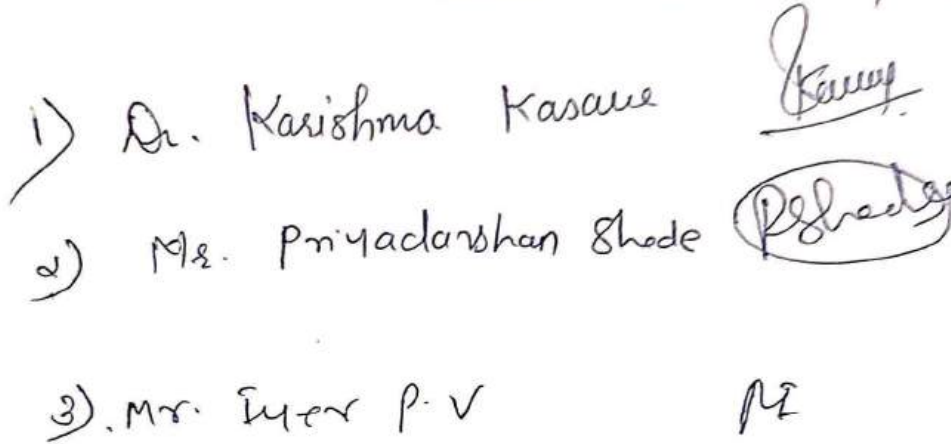 1) Dr. Karishma Kasaue
2) Mr. Priyadarshan Shode PShode
3). Mr. Iyer P. V PI